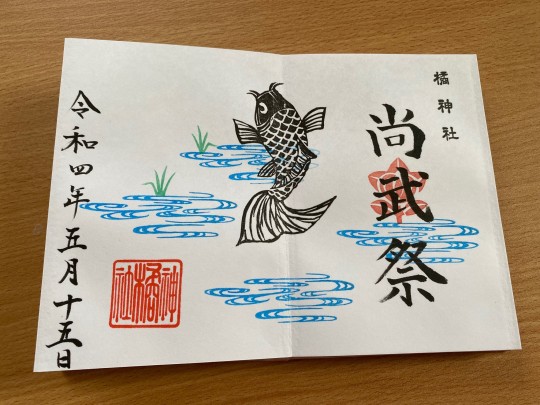 橘神社
尚武祭
令和四年五月十五日
橘神社